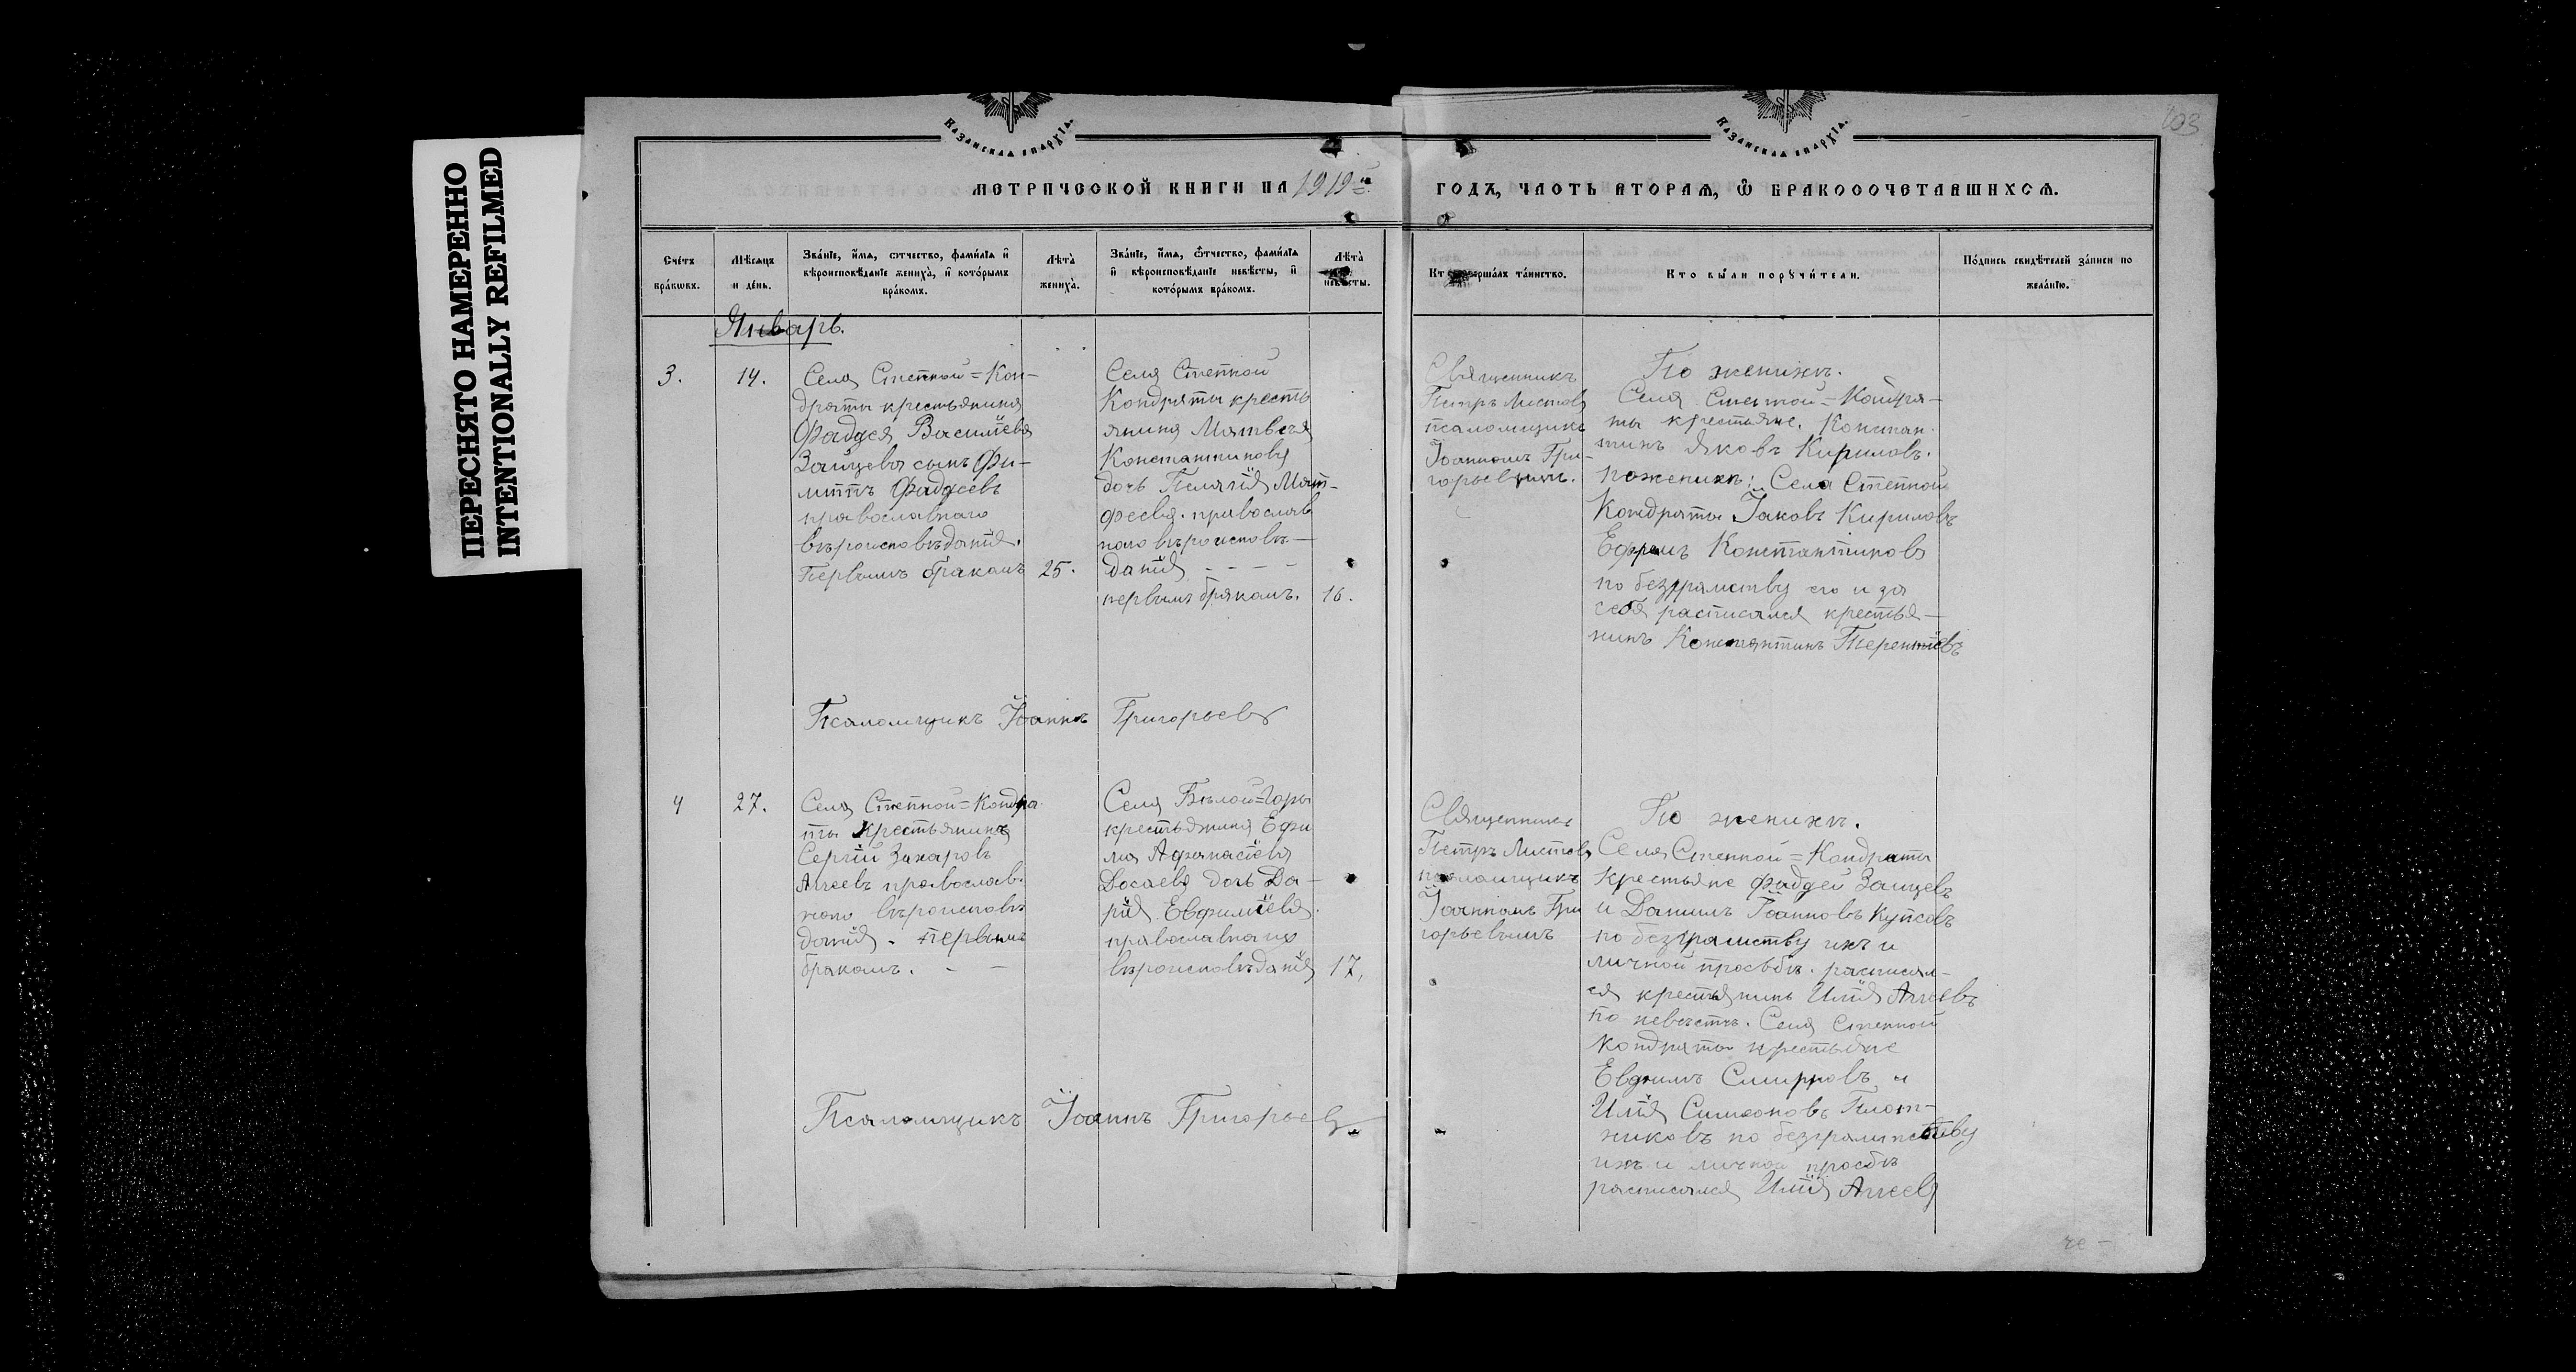 ПЕРЕСНЯТО НАМЕРЕННО
INTENTIONALLY REFILMED
КАЗАНСКАЯ ЕПАРХІЯ.
КАЗАНСКАЯ ЕПАРХІЯ.
103
МЕТРИЧЕСКОЙ КНИГИ НА 1919й
ГОДЪ, ЧАСТЬ ВТОРАЯ, Ѿ БРАКОСОЧЕТАВШИХСЯ.
Счетъ браковъ.
Мѣсяцъ и день.
Званіе, имя, отчество, фамилія и
вѣроисповѣданіе жениха, и которымъ
бракомъ.
Лѣта
жениха.
Званіе, имя, отчество, фамилія
и вѣроисповѣданіе невѣсты, и
которымъ бракомъ.
Лѣта
невѣсты.
Кто совершалъ таинство.
Кто были поручители.
Подпись свидѣтелей записи по
желанію.
Январь.
3.
14.
Села Степной=Кон-
драты крестьянина
Фаддея Василіева
Зайцева сынъ Фи-
липпъ Фаддеевъ
православнаго
вѣроисповѣданія.
Первымъ бракомъ
25.
Села Степной
Кондраты кресть
янина Матвея
Константинова
дочь Пелагія Мат-
феева. православ
наго вѣроисповѣ-
данія - - - -
первымъ бракомъ.
16.
Священникъ
Петръ Листовъ
псаломщикъ
Іоанномъ Гри-
горьевымъ.
По женихѣ.
Села Степной=Кондра-
ты крестьяне. Констан-
тинъ Яковъ Кириловъ.
по женихѣ: Села Степной
Кондраты Іаковъ Кириловъ
Ефремъ Константиновъ
по безграмству его и за
себя расписался крестья-
нинъ Константинъ Терентіевъ
Псаломщикъ Іоаннъ Григорьевъ
4
27.
Села Степной=Кондра
ты крестьянинъ
Сергій Захаровъ
Агеевъ православ-
наго вѣроисповѣ
данія. первымъ
бракомъ. - -
Села Бѣлой=Горы
крестьянина Ефи
ма Афанасіева
Досаева дочь Да-
рія Евфиміева.
православнаго
вѣроисповѣданія
17.
Священникъ
Петръ Листовъ
псаломщикъ
Іоанномъ Гри
горьевымъ
По женихѣ.
Села Степной=Кондраты
крестьяне Фаддей Зайцевъ
и Данилъ Іоанновъ Купсовъ
по безграмству ихъ и
личной просьбѣ. расписал-
ся крестьянинъ Илія Агеевъ
по невѣстѣ. Села Степной
Кондраты крестьяне
Евфимъ Смирновъ и
Илія Симеоновъ Плот-
никовъ по безграмтству
ихъ и личной просбѣ
расписался Илія Агеевъ
Псаломщикъ Іоаннъ Григорьевъ